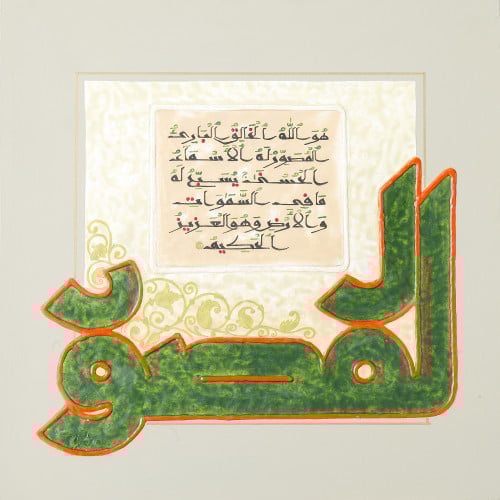 هُوَ اللَّهُ الْخَالِقُ الْبَارِئُ
الْمُصَوِّرُ لَهُ الْأَسْمَاءُ
الْحُسْنَىٰ يُسَبِّحُ لَهُ
مَا فِي السَّمَوَاتِ
وَالْأَرْضِ وَهُوَ الْعَزِيزُ
الْحَكِيمُ
المصور